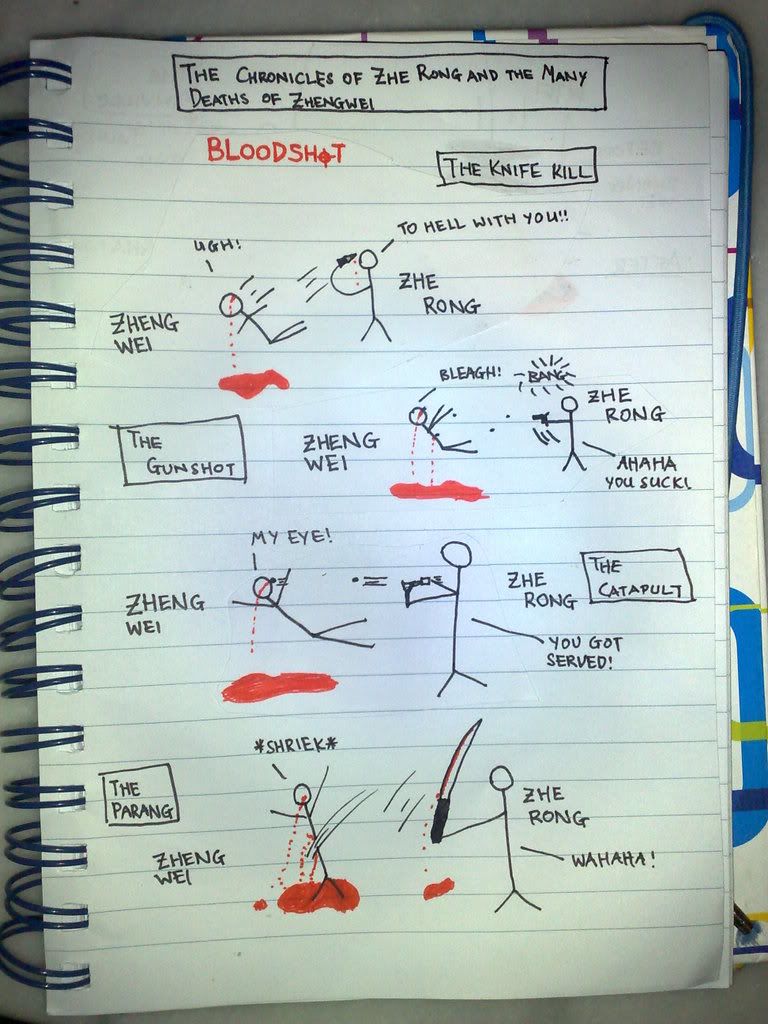 THE CHRONICLES OF ZHE RONG AND THE MANY
DEATHS OF ZHENGWEI
BLOODSHOT
THE KNIFE KILL
UGH!
TO HELL WITH YOU!!
ZHENG
WEI
ZHE
RONG
BLEAGH!
BANG
ZHE
RONG
THE
GUNSHOT
ZHENG
WEI
AHAHA
YOU SUCK!
MY EYE!
ZHENG
WEI
ZHE
RONG
THE
CATAPULT
YOU GOT
SERVED!
*SHRIEK*
THE
PARANG
ZHENG
WEI
ZHE
RONG
WAHAHA!